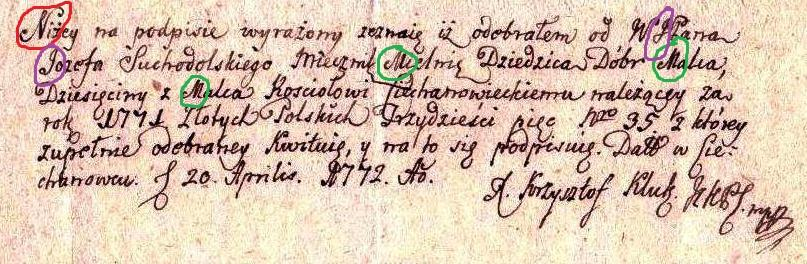 Niżey na podpisie wyrażony zeznaię iż odebrałem od WJPana
Józefa Suchodolskiego Miecznik Mielnic Dziedzica Dóbr Malca,
Dziesięciny z Malca Kościołowi Ciechanowieckiemu należącey za
rok 1771 Złotych Polskich Trzydzieści pięc Nro 35 z ktorey
zupełnie odebraney Kwituię, y na to się podpisuię. Datt w Cie-
chanowcu. d 20. Aprilis. 1772. Ao.
X. Krzysztof Kluk. mpp